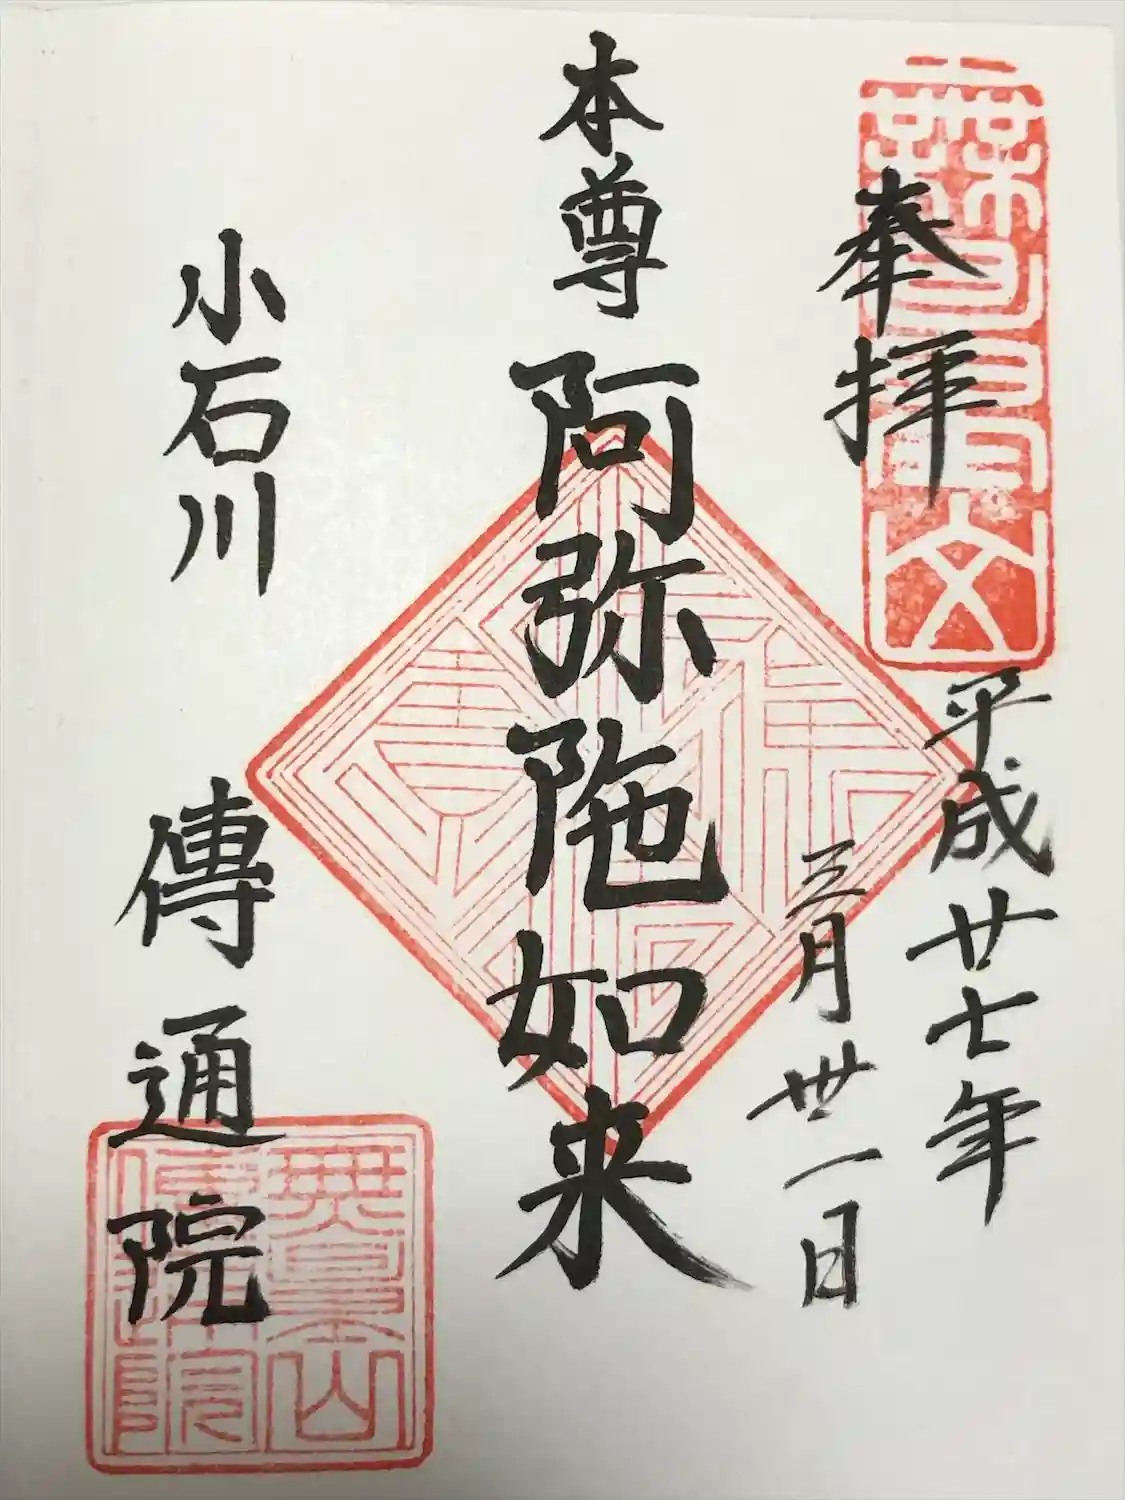 奉拝
平成廿七年
三月卅一日
本尊 阿弥陀如来
小石川 傳通院
無量山
傳通院